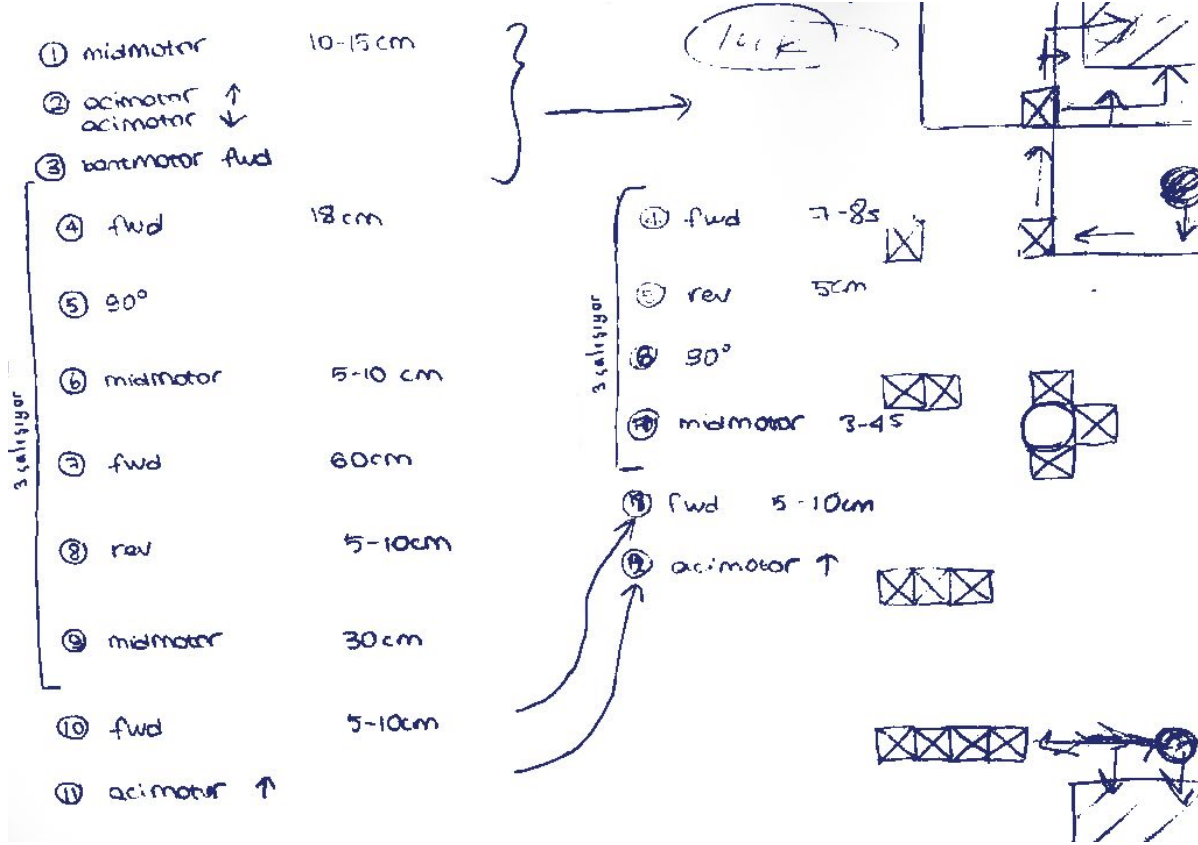 ① midmotor 10-15cm
② acimotor ↑
acimotor ↓
③ bantmotor fwd
3 çalışıyor
④ fwd 18cm
⑤ 90°
⑥ midmotor 5-10 cm
⑦ fwd 60cm
⑧ rev 5-10cm
⑨ midmotor 30cm
⑩ fwd 5-10cm
⑪ acimotor ↑
3 çalışıyor
④ fwd 7-8s
⑤ rev 5cm
⑥ 90°
⑦ midmotor 3-4s
fwd 5-10cm
acimotor ↑